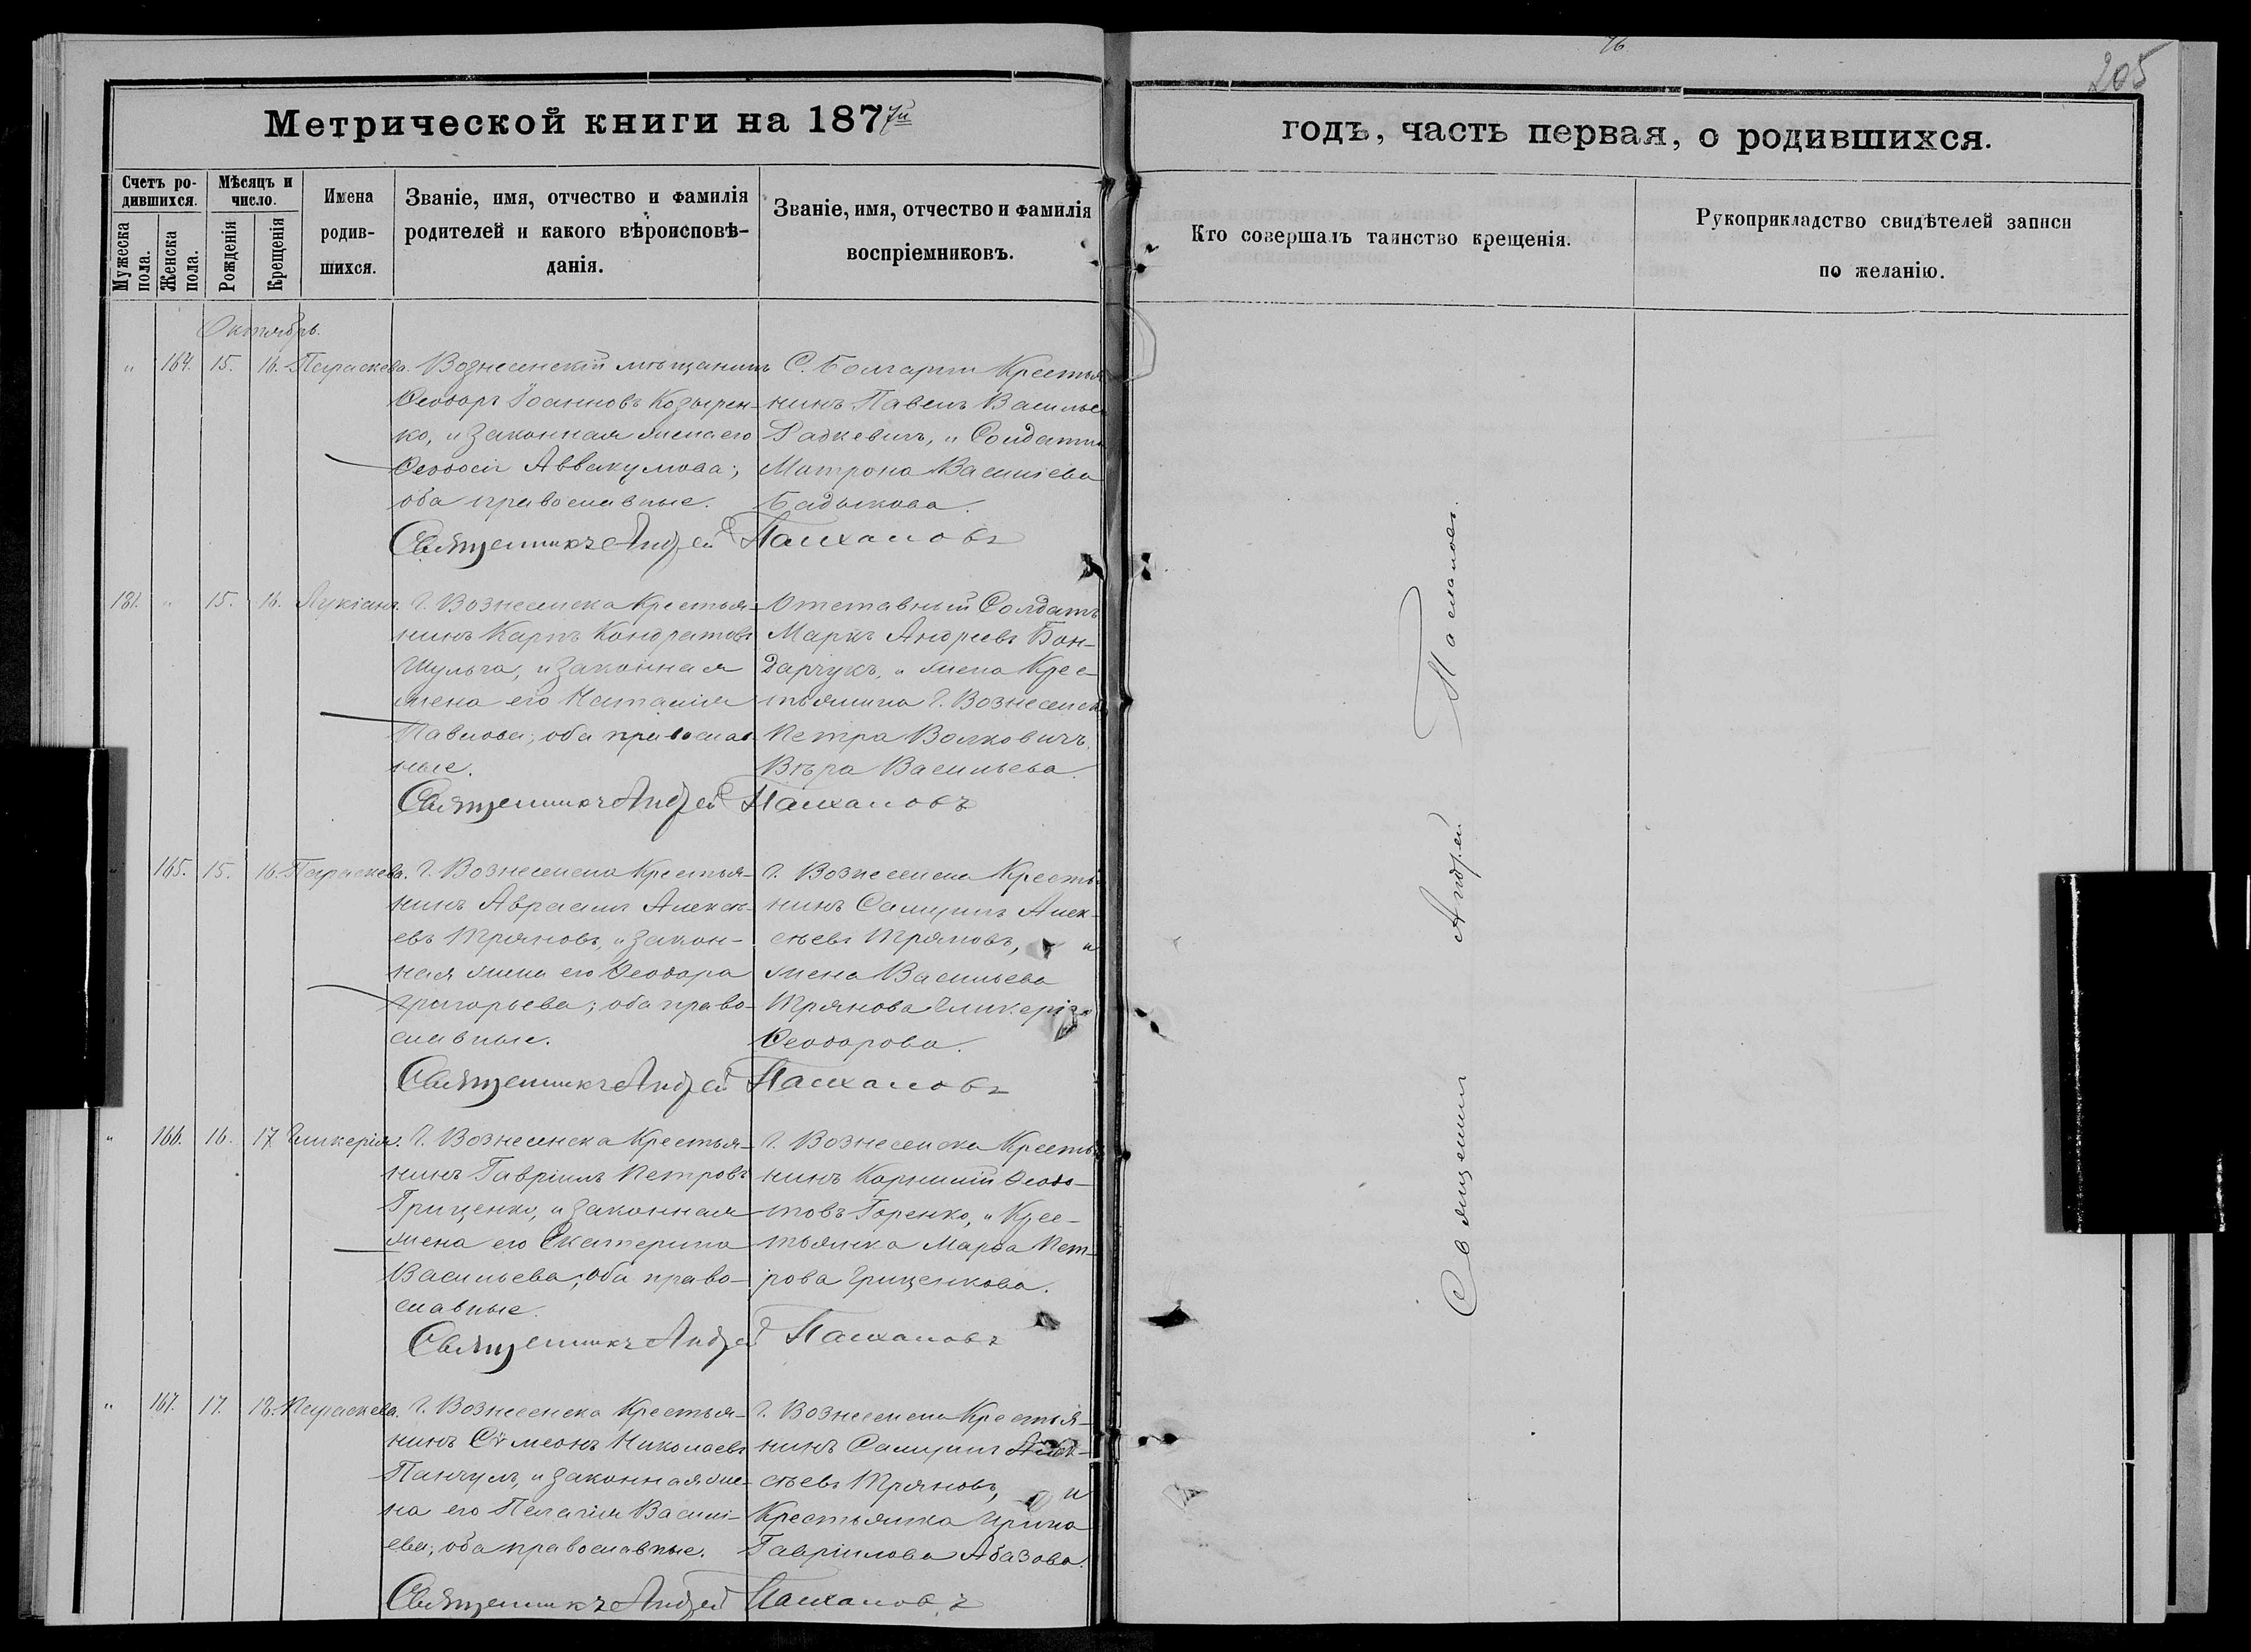 76
205
Метрической книги на 1877й
годъ, часть первая, о родившихся.
Счетъ ро-
дившихся.
Мужеска
пола.
Женска
пола.
Мѣсяцъ и
число.
Рожденія
Крещенія
Имена
родив-
шихся.
Званіе, имя, отчество и фамилія
родителей и какого вѣроисповѣ-
данія.
Званіе, имя, отчество и фамилія
воспріемниковъ.
Кто совершалъ таинство крещенія.
Рукоприкладство свидѣтелей записи
по желанію.
Октябрь.
" 164. 15. 16. Параскева.
Вознесенскій мѣщанинъ
Ѳеодоръ Іоанновъ Козырен-
ко, и законная жена его
Ѳеодосія Аввакумова;
оба православные.
С. Болгарки Крестья
нинъ Павелъ Василье
Радкевичъ, и Солдатка
Матрона Василіева
Бадыкова.
Священникъ Андрей Палхаловъ
181. " 15. 16. Лукіанъ.
Г. Вознесенска Крестья-
нинъ Карпъ Кондратовъ
Шульга, и законная
жена его Наталія
Павлова; оба православ-
ные.
Отставный Солдатъ
Маркъ Андреевъ Бон-
дарчукъ, и жена Крес-
тьянина Г. Вознесенска
Петра Волковичъ,
Вѣра Васильева.
Священникъ Андрей
" 165. 15. 16. Параскева.
Г. Вознесенска Крестья-
нинъ Аврамъ Алексѣ-
евъ Тряновъ, и закон-
ная жена его Ѳеодора
Григорьева; оба право-
славные.
Г. Вознесенска Крестья
нинъ Самуилъ Алек-
сѣевъ Тряновъ, и
жена Васильева
Трянова Гликерія
Ѳеодорова.
Священникъ Андрей
" 166. 16. 17. Гликерія.
Г. Вознесенска Крестья-
нинъ Гавріилъ Петровъ
Гриценко, и законная
жена его Екатерина
Васильева; оба право-
славные.
Г. Вознесенска Крестья
нинъ Корнилій Ѳеодо-
товъ Горенко, и Крес-
тьянка Марѳа Пет-
рова Гриценкова.
Священникъ Андрей
" 167. 17. 18. Параскева.
Г. Вознесенска Крестья-
нинъ Сѵмеонъ Николаевъ
Панчулъ, и законная же-
на его Пелагія Васили-
ева; оба православные.
Г. Вознесенска Крестья-
нинъ Самуилъ Алек-
сѣевъ Тряновъ, и
Крестьянка Ирина
Гавріилова Абазова.
Священникъ Андрей
Священникъ Андрей